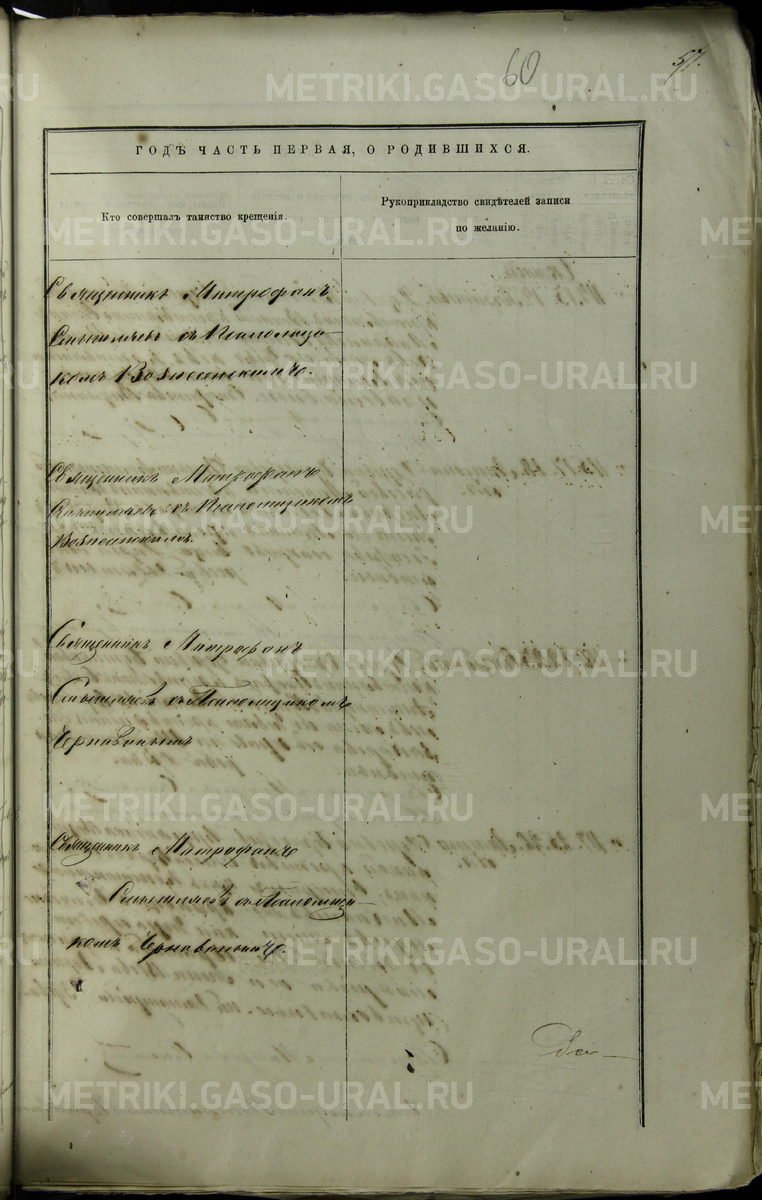 60
57.
ГОДЪ ЧАСТЬ ПЕРВАЯ, О РОДИВШИХСЯ.
Кто совершалъ таинство крещенія.
Рукоприкладство свидѣтелей записи
по желанію.
Священникъ Митрофанъ
съ Псаломщи-
комъ Вознесенскимъ.
Священникъ Митрофанъ
съ Псаломщикомъ
Вознесенскимъ.
Священникъ Митрофанъ
съ Псаломщикомъ
Чернавинымъ
Священникъ Митрофанъ
съ Псаломщи-
комъ Чернавинымъ.
METRIKI.GASO-URAL.RU